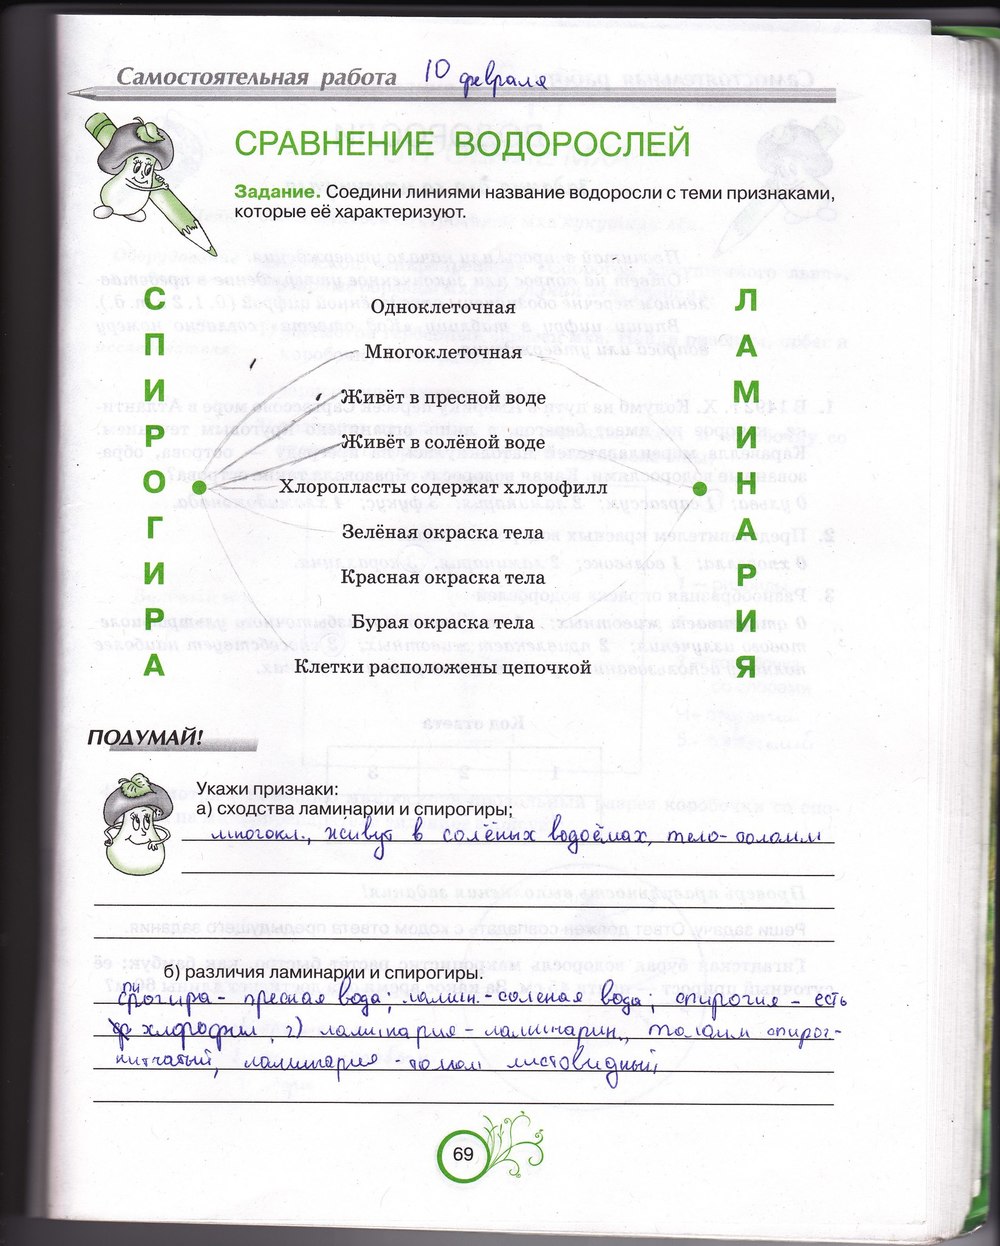 Самостоятельная работа 10 февраля
СРАВНЕНИЕ ВОДОРОСЛЕЙ
Задание. Соедини линиями название водоросли с теми признаками,
которые её характеризуют.
СПИРОГИРА
Одноклеточная
Многоклеточная
Живёт в пресной воде
Живёт в солёной воде
Хлоропласты содержат хлорофилл
Зелёная окраска тела
Красная окраска тела
Бурая окраска тела
Клетки расположены цепочкой
ЛАМИНАРИЯ
ПОДУМАЙ!
Укажи признаки:
а) сходства ламинарии и спирогиры;
многокл., живут в солёных водоёмах, тело-
б) различия ламинарии и спирогиры.
спирогира - пресная вода; ламин.-соленая вода; - есть
хлорофил, ламинария - ламинарин,
нитчатый, ламинария - листовидный;
69